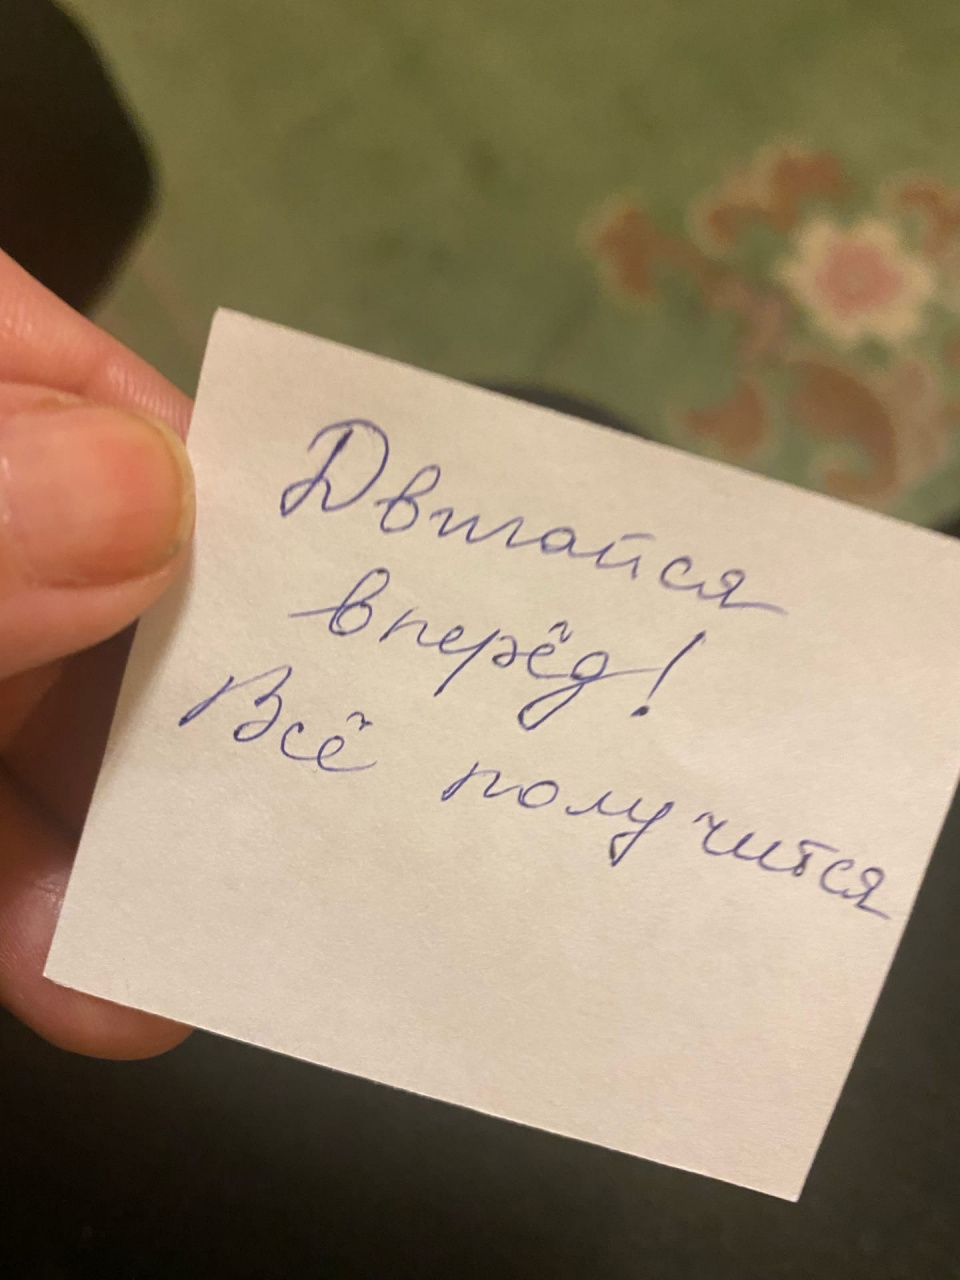 Двигайся
вперёд!
Всё получится